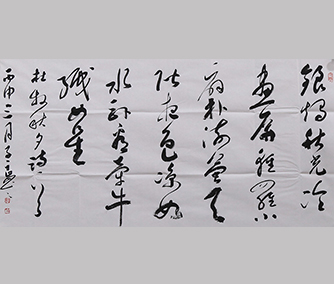 銀燭秋光冷
畫屏輕羅小
扇扑流螢天
階夜色凉如
水卧看牽牛
織女星
杜牧秋夕詩一首
丙申三月